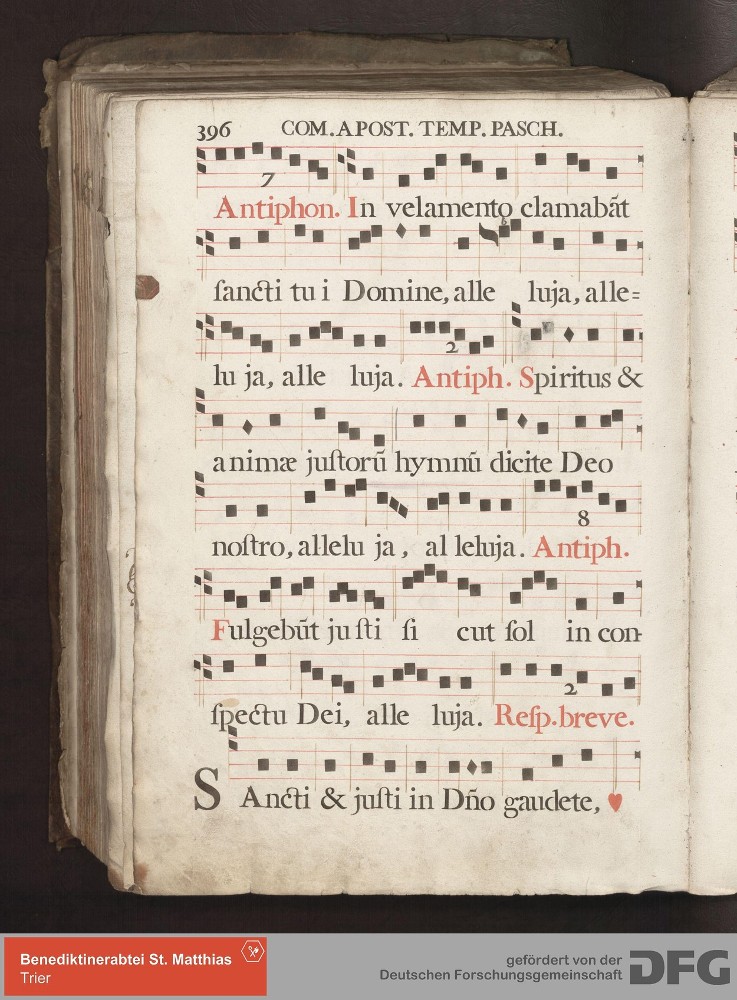 396 COM. APOST. TEMP. PASCH.
7
Antiphon. In velamento clamabãt
ſancti tu i Domine, alle luja, alle=
2
lu ja, alle luja. Antiph. Spiritus &
animæ juſtorũ hymnũ dicite Deo
8
noſtro, allelu ja, al leluja. Antiph.
Fulgebũt ju ſti ſi cut ſol in con-
2
ſpectu Dei, alle luja. Reſp. breve.
SAncti & juſti in Dño gaudete,
Benediktinerabtei St. Matthias
Trier
gefördert von der
Deutschen Forschungsgemeinschaft
DFG